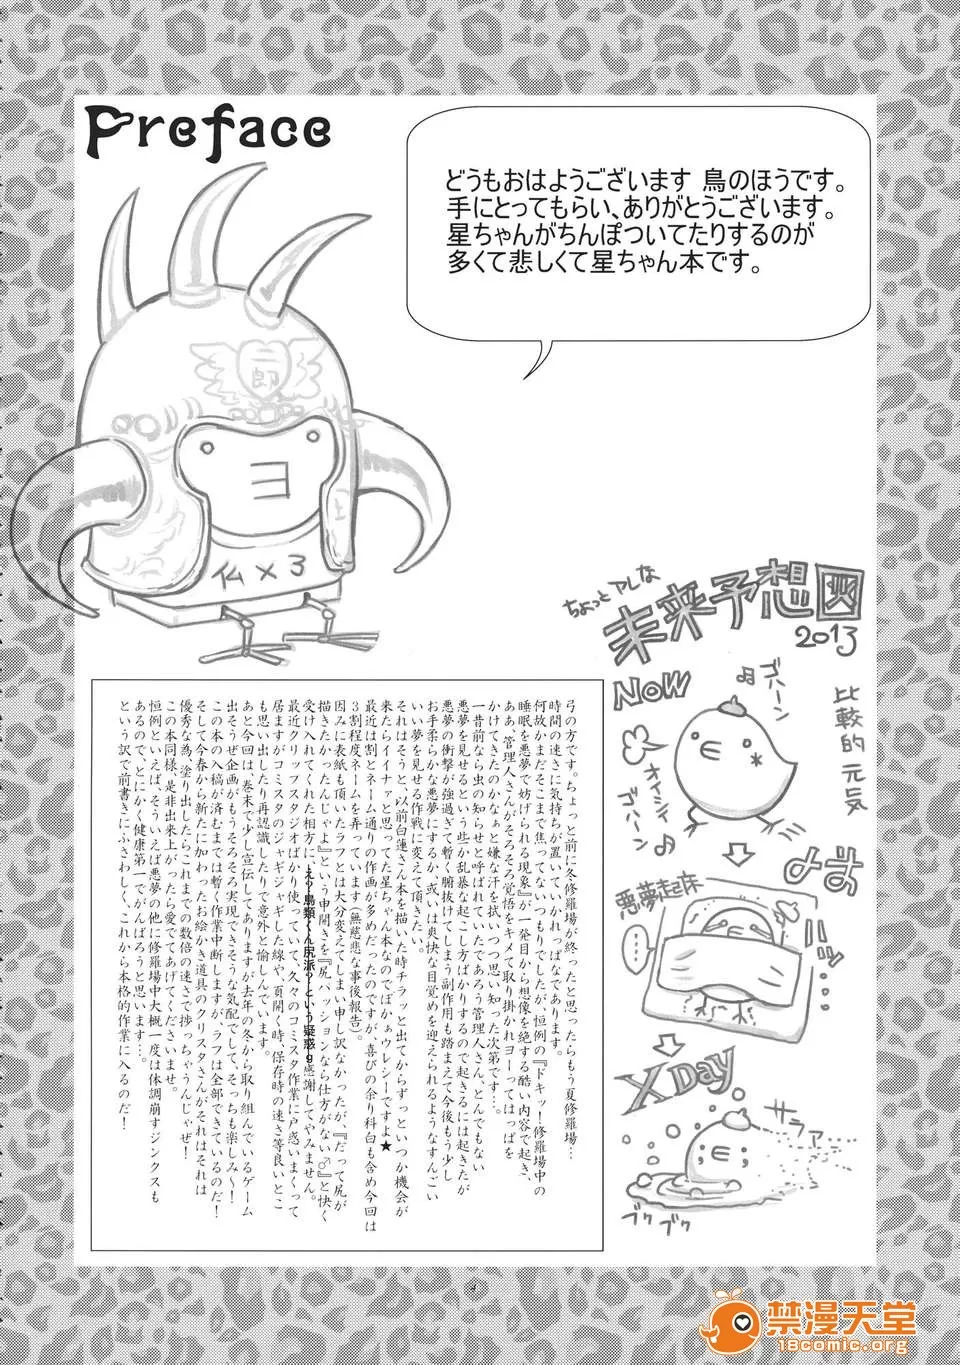 Preface
どうもおはようございます 鳥のほうです。
手にとってもらい、ありがとうございます。
星ちゃんがちんぽついてたりするのが
多くて悲しくて星ちゃん本です。
一郎
ヨ
仏×3
ちょっとアレな
未来予想図
2013
NOW
ゴハーン
比較的元気
オイシイ
ゴハーン
悪夢起床
…
ハッ…
X Day
サラァ…
ブクブク
弓の方です。ちょっと前に冬修羅場が終ったと思ったらもう夏修羅場…
時間の速さに気持ちが置いていかれっぱなしであります。
何故かまだそこまで焦ってないつもりでしたが、恒例の『ドキッ！修羅場中の
睡眠を悪夢で妨げられる現象』が一発目から想像を絶する酷い内容で起き、
ああ、管理人さんがそろそろ覚悟をキメて取り掛かれヨーってはっぱを
かけてきたのかなぁと嫌な汗を拭いつつ思い知った次第です…。
一昔前なら虫の知らせと呼ばれていたであろう管理人さん、とんでもない
悪夢を見せるという些か乱暴な起こし方ばかりするので起きるには起きたが
悪夢の衝撃が強過ぎて暫く腑抜けてしまう副作用も踏まえて今後もう少し
お手柔らかな悪夢にするか、或いは爽快な目覚めを迎えられるようなすんごい
いい夢を見せる作戦に変えて頂きたい。
それはそうと、以前白蓮さん本を描いた時チラッと出てからずっといつか機会が
来たらイイナァと思ってた星ちゃん本なのでぼかぁウレシーですよ★
最近は割とネーム通りの作画が多めだったのですが、喜びの余り科白も含め今回は
3割程度ネームを弄っています(無慈悲な事後報告)。
因みに表紙も頂いたラフとは大分変えてしまい申し訳なかったが、『だって尻が
描きたかったんじゃよ』という申開きを『尻パッションなら仕方がない♂』と快く
受け入れてくれた相方に(え？鳥類くん尻派？という疑惑)感謝してやみません。
最近クリップスタジオばかり使っていて、久々のコミスタ作業に戸惑いまくって
居ますがコミスタのジャギジャギした線や、頁開く時、保存時の速さ等良いとこ
も思い出したり再認識したりで意外と愉しんでいます。
あと今回は、巻末で少し宣伝してありますが去年の冬から取り組んでいるゲーム
出そうぜ企画がもうそろそろ実現できそうな気配でして、そっちも楽しみ～！
この本の入稿が済むまでは暫く作業中断しますが、ラフは全部できているのだ！
そして今春から新たに加わったお絵かき道具のクリスタさんがそれはそれは
優秀な為、塗り出したらこれまでの数倍の速さで捗っちゃうんじゃぜ！
この本同様、是非出来上がったら愛でてあげてくださいませ。
恒例といえば、そういえば悪夢の他に修羅場中大概一度は体調崩すジンクスも
あるので、とにかく健康第一でがんばろうと思います…。
という訳で前書きにふさわしく、これから本格的作業に入るのだ！
禁漫天堂
18comic.org